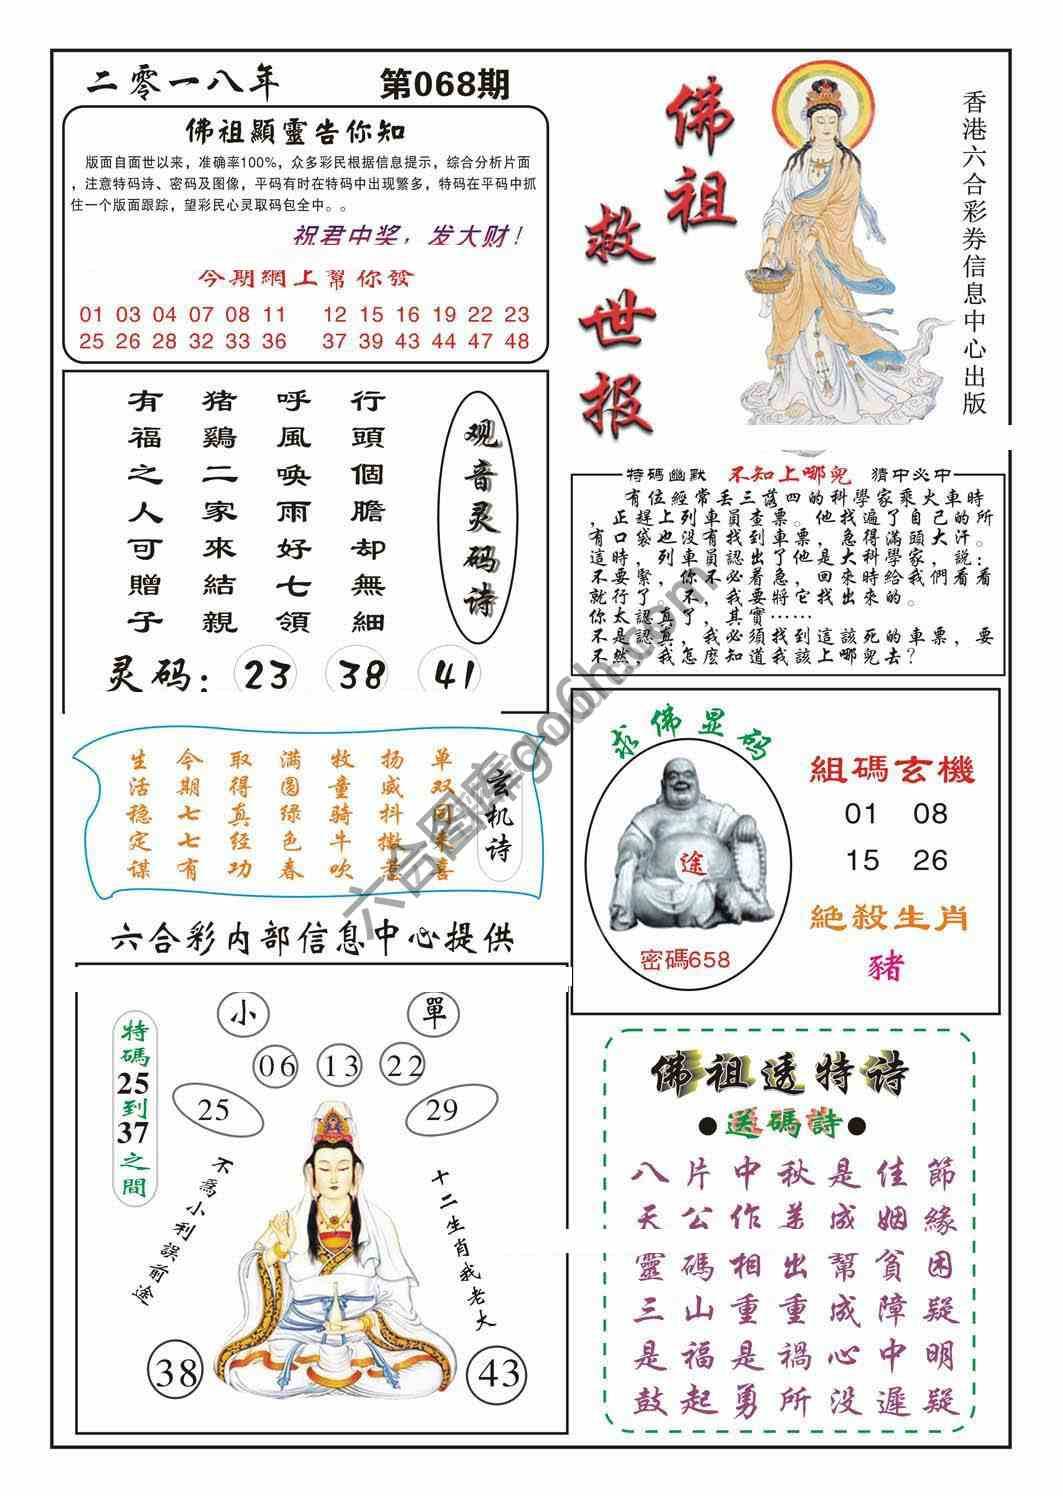 二零一八年
第068期
佛祖顯靈告你知
版面自面世以来，准确率100%，众多彩民根据信息提示，综合分析片面
，注意特码诗、密码及图像，平码有时在特码中出现繁多，特码在平码中抓
住一个版面跟踪，望彩民心灵取码包全中。。
祝君中奖，发大财！
今期網上幫你發
01 03 04 07 08 11 12 15 16 19 22 23
25 26 28 32 33 36 37 39 43 44 47 48
佛祖
救世报
香港六合彩券信息中心出版
观音灵码诗
行頭個膽却無細
呼風喚雨好七領
猪鷄二家來結親
有福之人可贈子
灵码：23 38 41
特碼幽默 不知上哪兒 猜中必中
有位經常丢三落四的科學家乘火車時
，正趕上列車員查票。他找遍了自己的所
有口袋也没有找到車票，急得滿頭大汗。
這時，列車員認出了他是大科學家，説：
不要緊，你不必着急，回來時給我們看看
就行了。不，我要將它找出來的。
你太認真了，其實……
不是認真，我必須找到這該死的車票，要
不然，我怎麽知道我該上哪兒去？
玄机诗
单双同来喜
扬威抖擞
牧童骑牛吹
满园绿色春
取得真经功
今期七七有
生活稳定谋
六合彩内部信息中心提供
求佛显码
途
密碼658
組碼玄機
01 08
15 26
絕殺生肖
豬
小 單
06 13 22
25 29
特碼25到37之間
不爲小利誤前途
十二生肖我老大
38 43
佛祖透特诗
●送碼詩●
八片中秋是佳節
天公作美成姻緣
靈碼相出幫貧困
三山重重成障疑
是福是禍心中明
鼓起勇所没遲疑
六合图库go6h.com